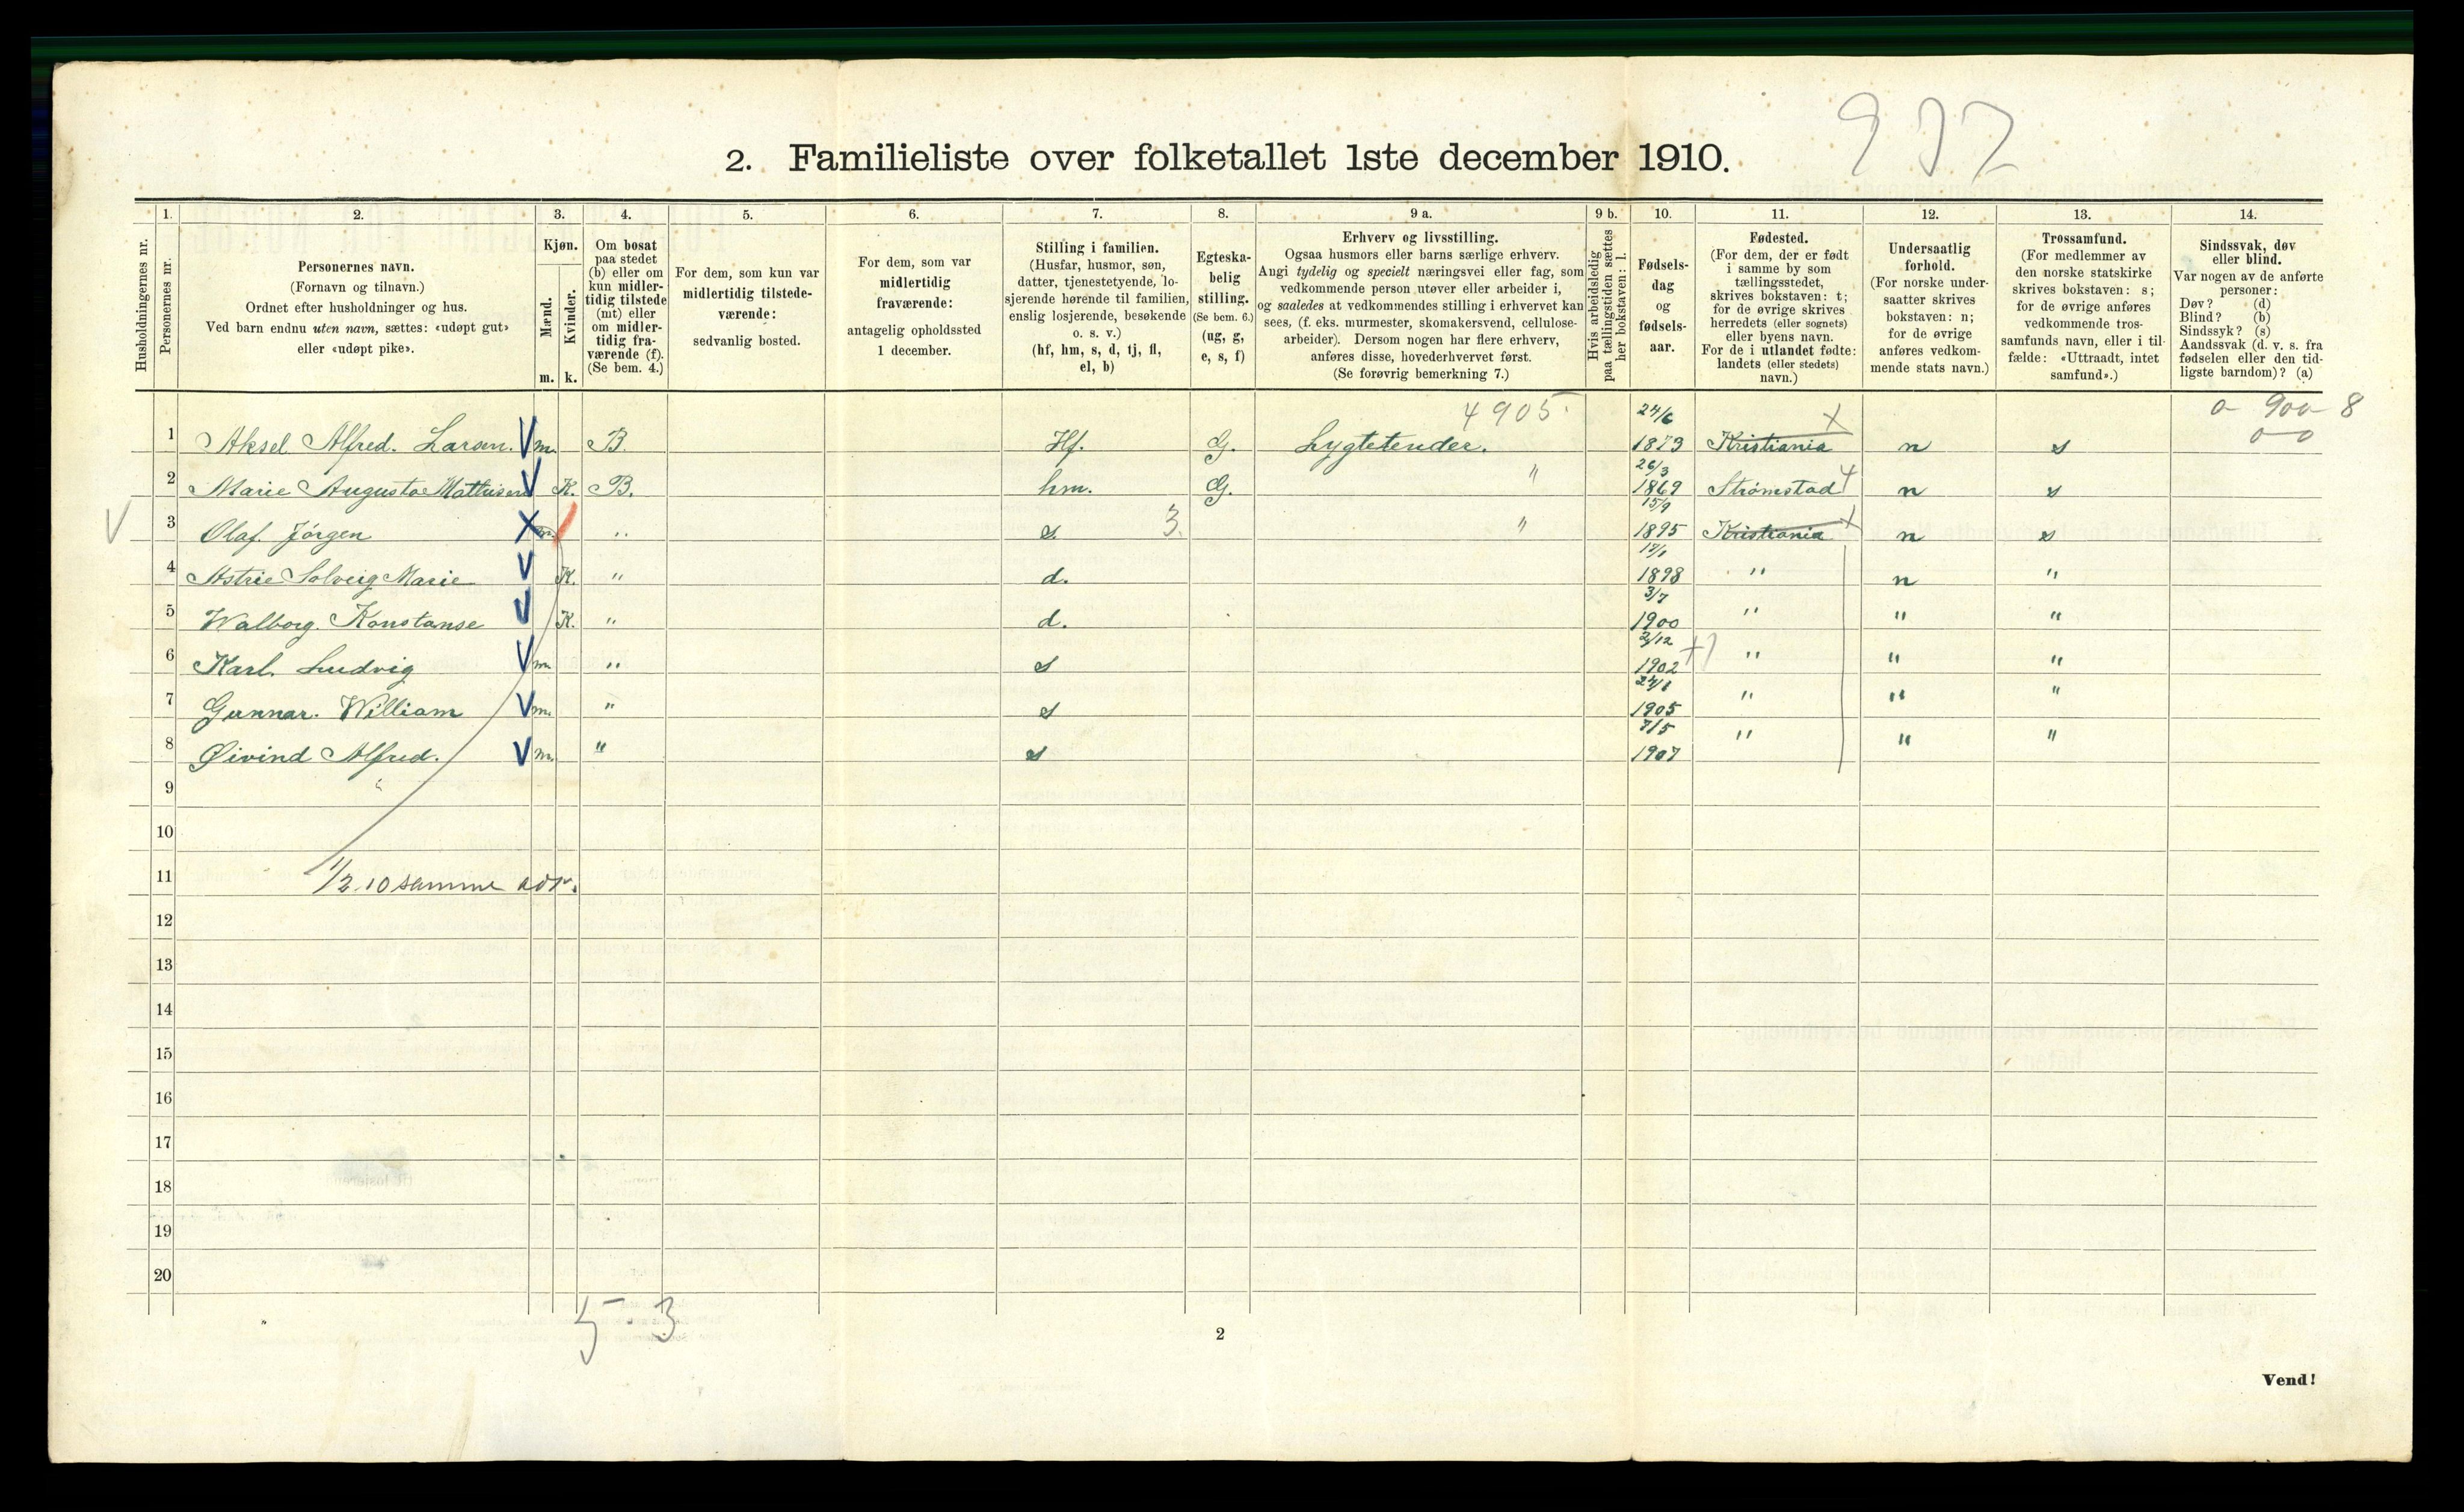 932
2. Familieliste over folketallet 1ste december 1910.
Husholdningernes nr.
1.
Personernes nr.
2.
Personernes navn.
(Fornavn og tilnavn.)
Ordnet efter husholdninger og hus.
Ved barn endnu uten navn, sættes: «udøpt gut»
eller «udøpt pike».
3.
Kjøn.
Mænd.
m.
Kvinder.
k.
4.
Om bosat
paa stedet
(b) eller om
kun midler-
tidig tilstede
(mt) eller
om midler-
tidig fra-
værende (f).
(Se bem. 4.)
5.
For dem, som kun var
midlertidig tilstede-
værende:
sedvanlig bosted.
6.
For dem, som var
midlertidig
fraværende:
antagelig opholdssted
1 december.
7.
Stilling i familien.
(Husfar, husmor, søn,
datter, tjenestetyende, lo-
sjerende hørende til familien,
enslig losjerende, besøkende
o. s. v.)
(hf, hm, s, d, tj, fl,
el, b)
8.
Egteska-
belig
stilling.
(Se bem. 6.)
(ug, g,
e, s, f)
9 a.
Erhverv og livsstilling.
Ogsaa husmors eller barns særlige erhverv.
Angi tydelig og specielt næringsvei eller fag, som
vedkommende person utøver eller arbeider i,
og saaledes at vedkommendes stilling i erhvervet kan
sees, (f. eks. murmester, skomakersvend, cellulose-
arbeider). Dersom nogen har flere erhverv,
anføres disse, hovederhvervet først.
(Se forøvrig bemerkning 7.)
9 b.
Hvis arbeidsledig
paa tællingstiden sættes
her bokstaven: l.
10.
Fødsels-
dag
og
fødsels-
aar.
11.
Fødested.
(For dem, der er født
i samme by som
tællingsstedet,
skrives bokstaven: t;
for de øvrige skrives
herredets (eller sognets)
eller byens navn.
For de i utlandet fødte:
landets (eller stedets)
navn.)
12.
Undersaatlig
forhold.
(For norske under-
saatter skrives
bokstaven: n;
for de øvrige
anføres vedkom-
mende stats navn.)
13.
Trossamfund.
(For medlemmer av
den norske statskirke
skrives bokstaven: s;
for de øvrige anføres
vedkommende tros-
samfunds navn, eller i til-
fælde: «Uttraadt, intet
samfund».)
14.
Sindssvak, døv
eller blind.
Var nogen av de anførte
personer:
Døv? (d)
Blind? (b)
Sindssyk? (s)
Aandssvak (d. v. s. fra
fødselen eller den tid-
ligste barndom)? (a)
4905 0-900-8
1 Aksel Alfred. Larsen. V m. B. Hf. G. Lygtetender. 24/6 1873 Kristiania X n s 0-0
2 Marie Augusta Mathisen V K. B. hm. G. " 26/3 1869 Strömstad 4 n s
V 3 Olaf Jörgen X m. / " s. 3. " 15/9 1895 Kristiania X n s
4 Astrie Solveig Marie V K. " d. 1898 " n "
5 Walborg. Konstanse V K. " d. 3/7 1900 " " "
6 Karl. Ludvig V m. " s 2/12 1902 " " "
7 Gunnar. William V m. " s 1905 " " "
8 Øivind Alfred. V m. " s 7/5 1907 " " "
9
10
11 1/2.10 samme adr.
12
13
14
15
16
17
18
19
20
5 · 3
2
Vend!